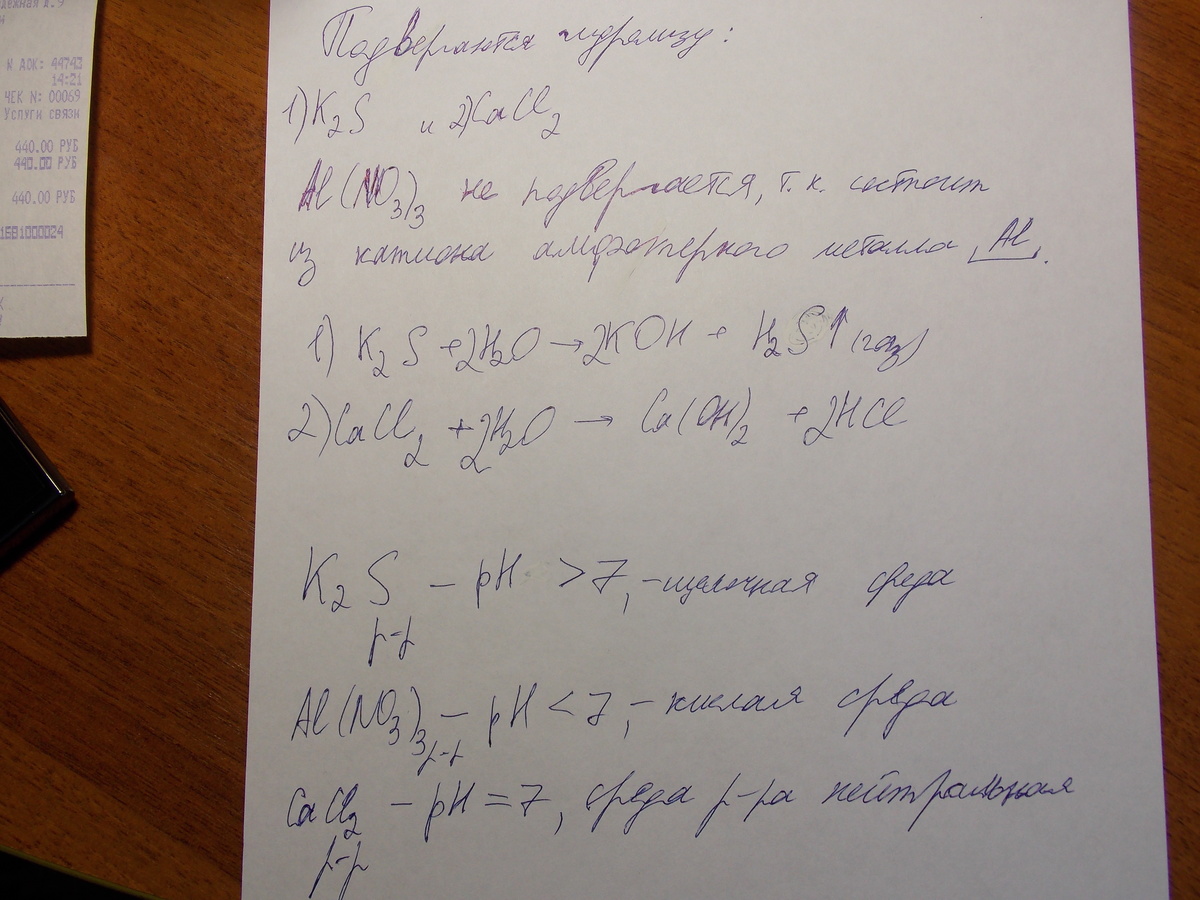 дежная д.9
N АОК: 44743
14:21
ЧЕК N: 00069
Услуги связи
440.00 РУБ
440.00 РУБ
440.00 РУБ
Подвергаются гидролизу:
1) K2S и 2) CaCl2
Al(NO3)3 не подвергается, т.к. состоит
из катиона амфотерного металла Al.
1) K2S + 2H2O → 2KOH + H2S↑ (газ)
2) CaCl2 + 2H2O → Ca(OH)2 + 2HCl
K2S р-р – pH > 7, – щелочная среда
Al(NO3)3 р-р – pH < 7, – кислая среда
CaCl2 р-р – pH = 7, среда р-ра нейтральная